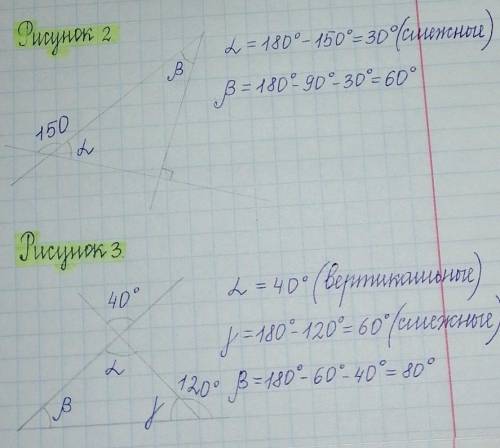 Рисунок 2
α = 180° - 150° = 30° (смежные)
β = 180° - 90° - 30° = 60°
β
150
α
Рисунок 3.
40°
α = 40° (вертикальные)
γ = 180° - 120° = 60° (смежные)
α
120°
β = 180° - 60° - 40° = 80°
β
γ